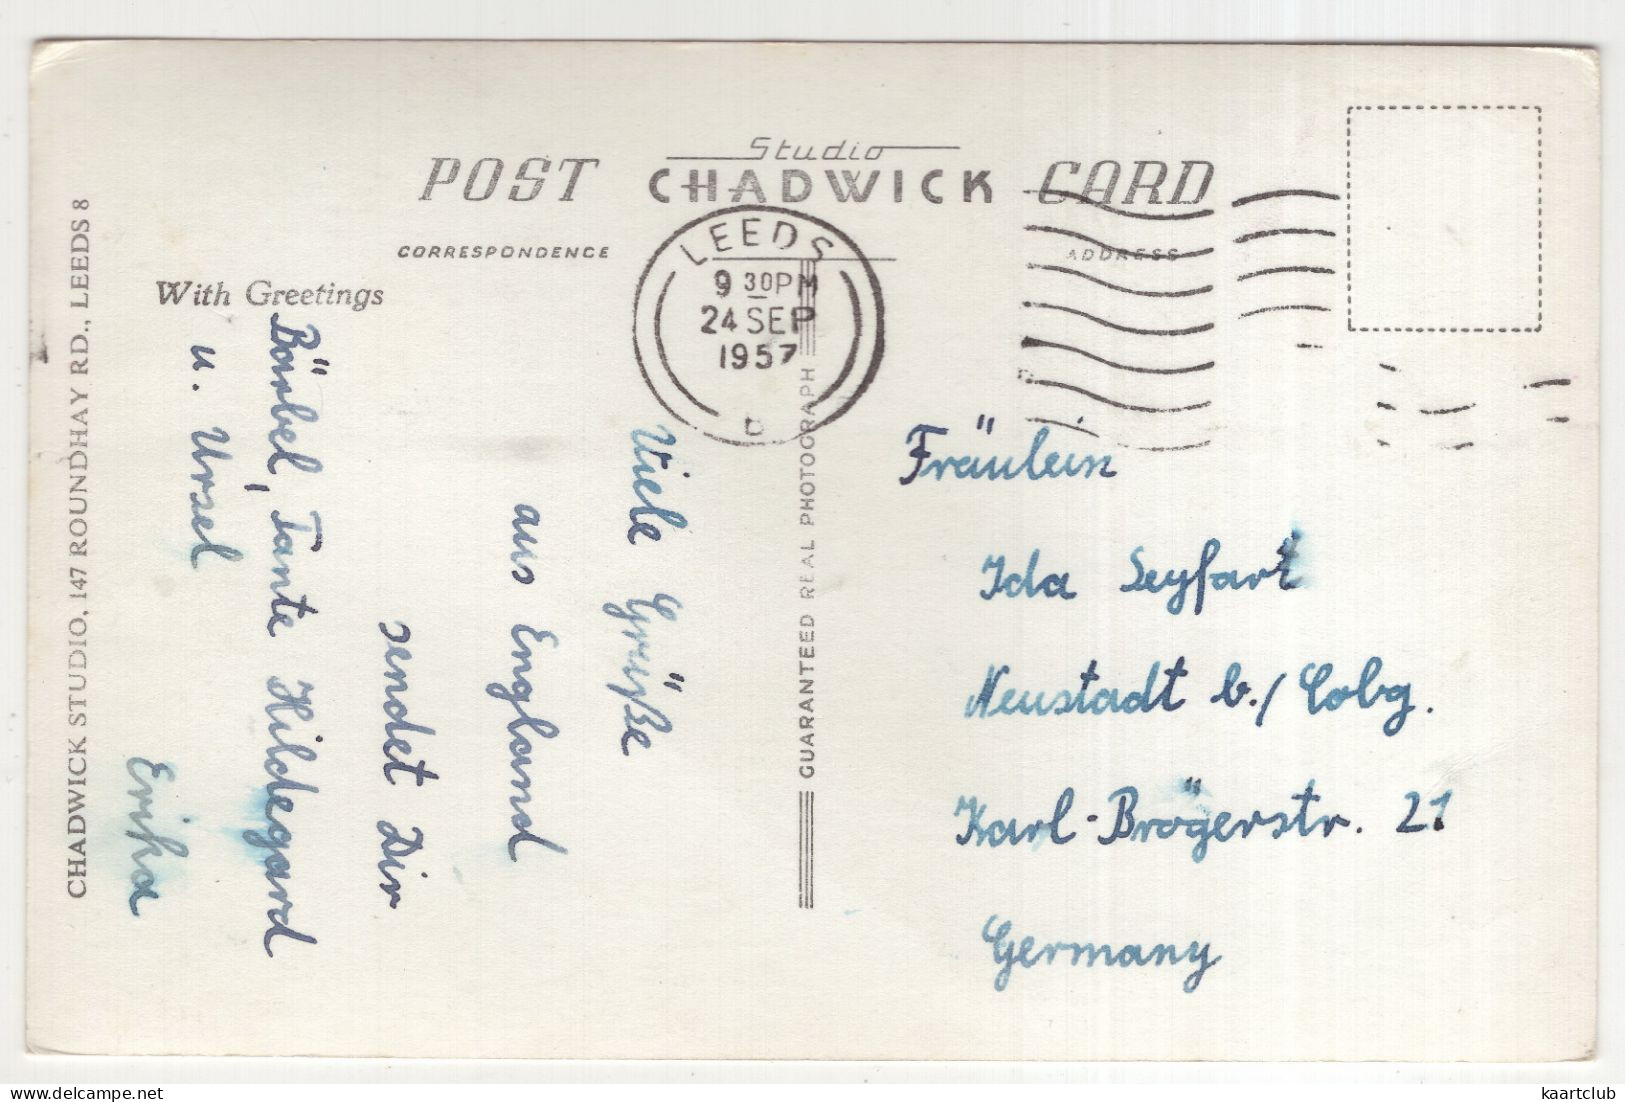 POST Studio CHADWICK CARD
CORRESPONDENCE
ADDRESS
With Greetings
LEEDS
9 30PM
24 SEP
1957
CHADWICK STUDIO, 147 ROUNDHAY RD., LEEDS 8
GUARANTEED REAL PHOTOGRAPH
Viele Grüße
aus England
sendet Dir
Bärbel, Tante Hildegard
u. Ursel
Erika
Fräulein
Ida Seyfart
Neustadt b./Cobg.
Karl-Brögerstr. 21
Germany
kaartclub